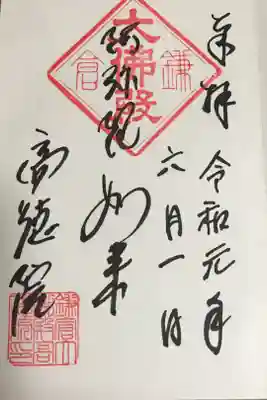 奉拝
令和元年
六月一日
阿弥陀如来
高徳院
大佛殿
鎌倉